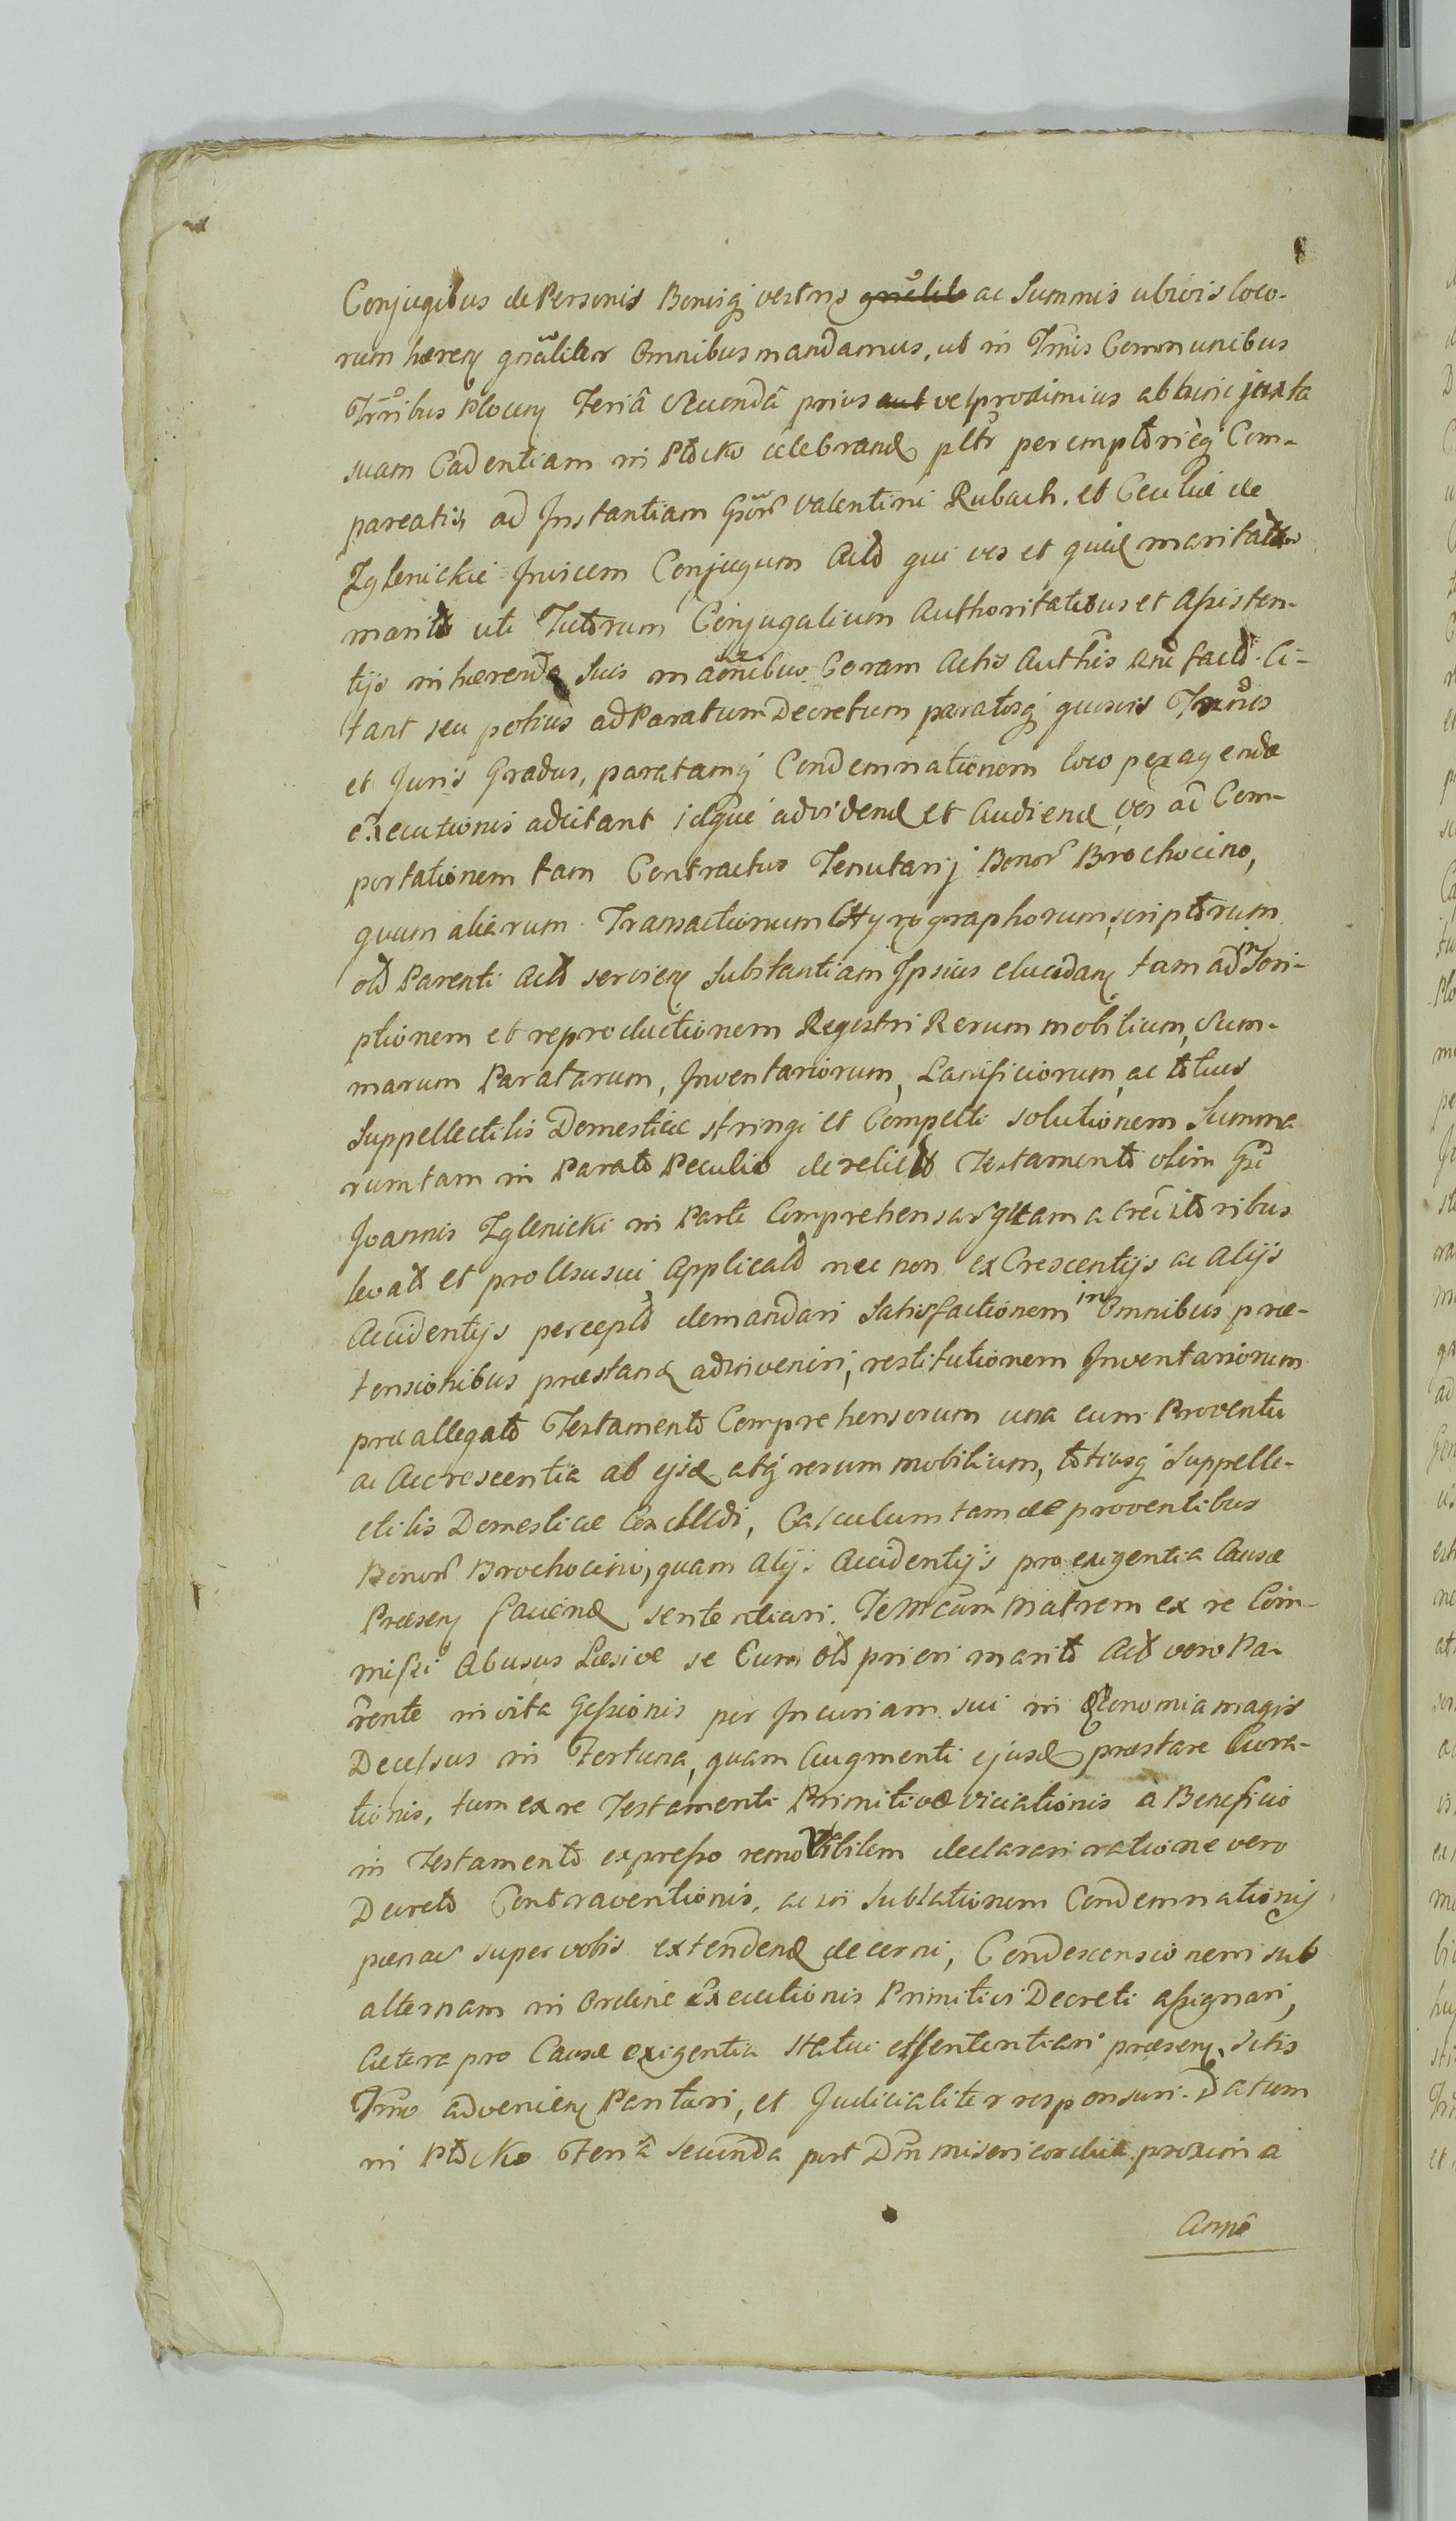 Conjugibus de Personis Bonisq vestris gnrelib ac Summis ubivis loco-
rum hæren gnaliter Omnibus mandamus, ut in Tmis Communibus
Trribus Plocen Feriâ Secundâ prius aut vel proximius ab hinc juxta
suam Cadentiam in Plocko celebrand pltr peremptorièq Com-
pareatis, ad Instantiam Gnor Valentini Rubach, et Ceciliæ de
Zglenickie Invicem Conjugum Acto qui vos et quid maritatto
marito uti Tutorum Conjugalium Authoritatibus et Assisten-
tijs inhærendo Suis maonibus Coram Actis Authis and facto. Ci-
tant seu potius ad Paratum Decretum paratosq quosvis Tmnos
et Juris Gradus, paratamq Condemnationem loco peragendæ
Executionis adcitant idque ad vidend et Audiend vos ad Com-
portationem tam Contractus Tenutarij Bonor Brochocino,
quum aliarum Transactionum Chyrographorum, scriptorum
old Parenti Acto servien Substantiam Ipsius elucidan tam ad in Scri-
ptionem et reproductionem Regestri Rerum mobilium, Sum-
marum Paratarum, Inventariorum, Lanificiorum, ac totius
Suppellectilis Domesticæ stringi et Compelli solutionem Summa
rum tam in Parato Peculio derelicto Testamento olim Gsi
Joannis Zglenicki in Parte Comprehensar quam a Creditoribus
levato et pro Usu sui Applicato nec non ex Crescentijs ac Alijs
Accidentijs percepto demandari Satisfactionem in Omnibus præ-
tensionibus præstand adinveniri, restitutionem Inventariorum
præallegato Testamento Comprehensorum una cum Proventu
ac Accrescentia ab ejsd atq rerum mobilium, totiusq Suppelle-
ctilis Domesticæ Calculum tam de proventibus
Bonor Brochocino, quam Alijs Accidentijs pro exigentia Causæ
Præsen faciend sententiari. Matrem ex re Com-
missi Abusus Læsivæ se Cum old priori marito Acto vero Pa-
rente in vita Gessionis per Incuriam sui in Œconomia magis
Decessus in Fortuna, quam Augmenti ejusd præstare Cura-
tionis, tum ex re Testamenti Primitivæ viciationis à Beneficio
in Testamento expresso removibilem declarari ratione vero
Decreto Contraventionis, ac vi Sublationum Condemnationis
pænas super vobis extendend decerni, Condescensionem sub
alternam in Ordine Executionis Primitivi Decreti assignari,
Cætera pro Causæ exigentia Statui et sententiari præsen. Sitis
Tmo advenien Parituri, et Judicialiter responsuri. Datum
in Plocko Feriâ Secunda post Dnm Misericordiæ proxima
Anno